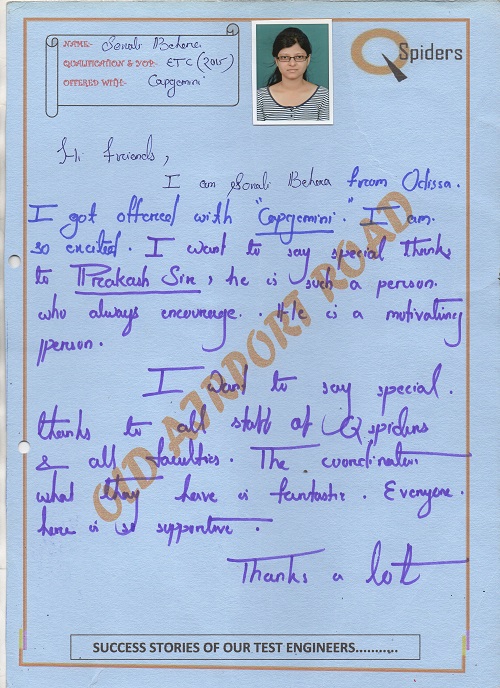 NAME:- Sonali Behera
QUALIFICATION & YOP:- ETC (2015)
OFFERED WITH:- Capgemini
Q Spiders
Hi friends,
I am Sonali Behera from Odissa.
I got offered with "Capgemini." I am
so excited. I want to say special thanks
to Prakash Sir, he is such a person.
who always encourage. He is a motivating
person.
I want to say special.
thanks to all staff of Qspiders
& all faculties. The coordination
what they have is fantastic. Everyone
here is so supportive.
Thanks a lot
OLD AIRPORT ROAD
SUCCESS STORIES OF OUR TEST ENGINEERS...........